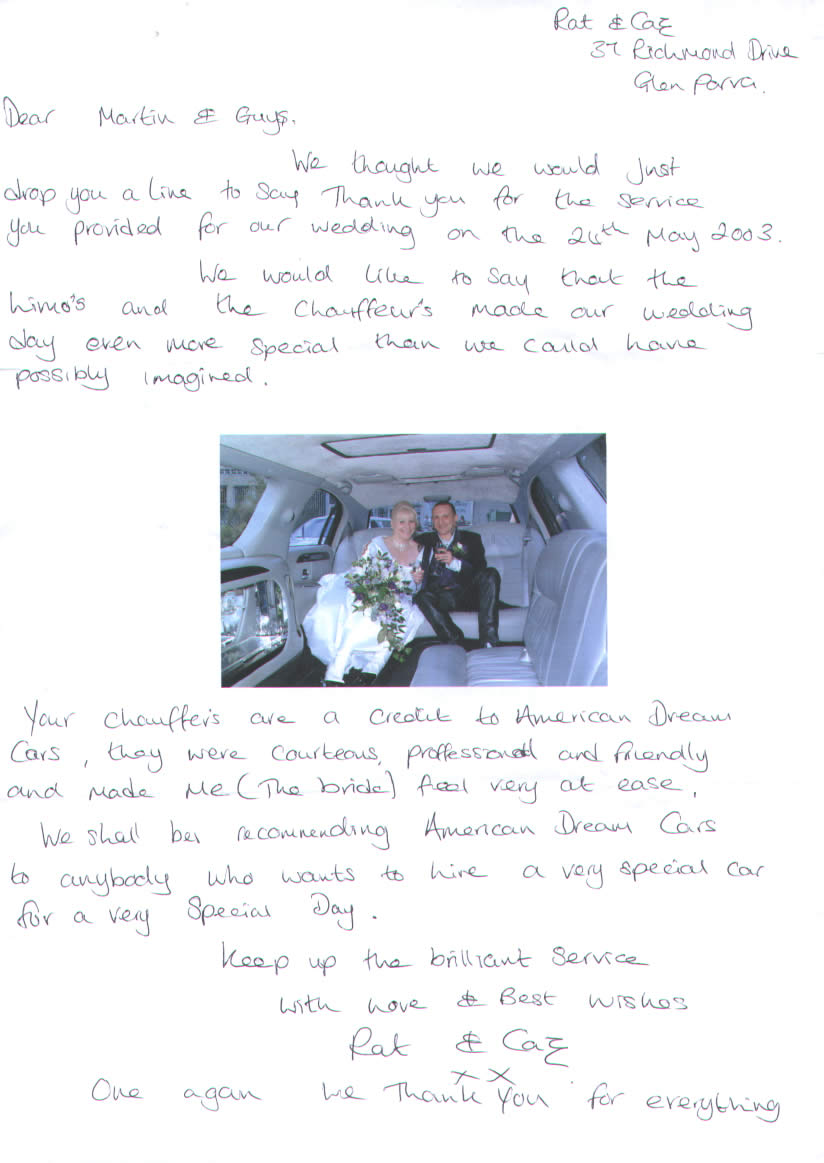 Rat & Caz
37 Richmond Drive
Glen Parva.
Dear Martin & Guys,
We thought we would just
drop you a line to say Thank you for the service
you provided for our wedding on the 24th May 2003.
We would like to say that the
Limo's and the Chauffeur's made our wedding
day even more special than we could have
possibly imagined.
Your chauffer's are a credit to American Dream
Cars, they were courteous, proffessional and friendly
and made Me (The bride) feel very at ease.
We shall be recommending American Dream Cars
to anybody who wants to hire a very special car
for a very Special Day.
Keep up the brilliant service
With Love & Best Wishes
Rat & Caz
x x
One again We Thank You for everything